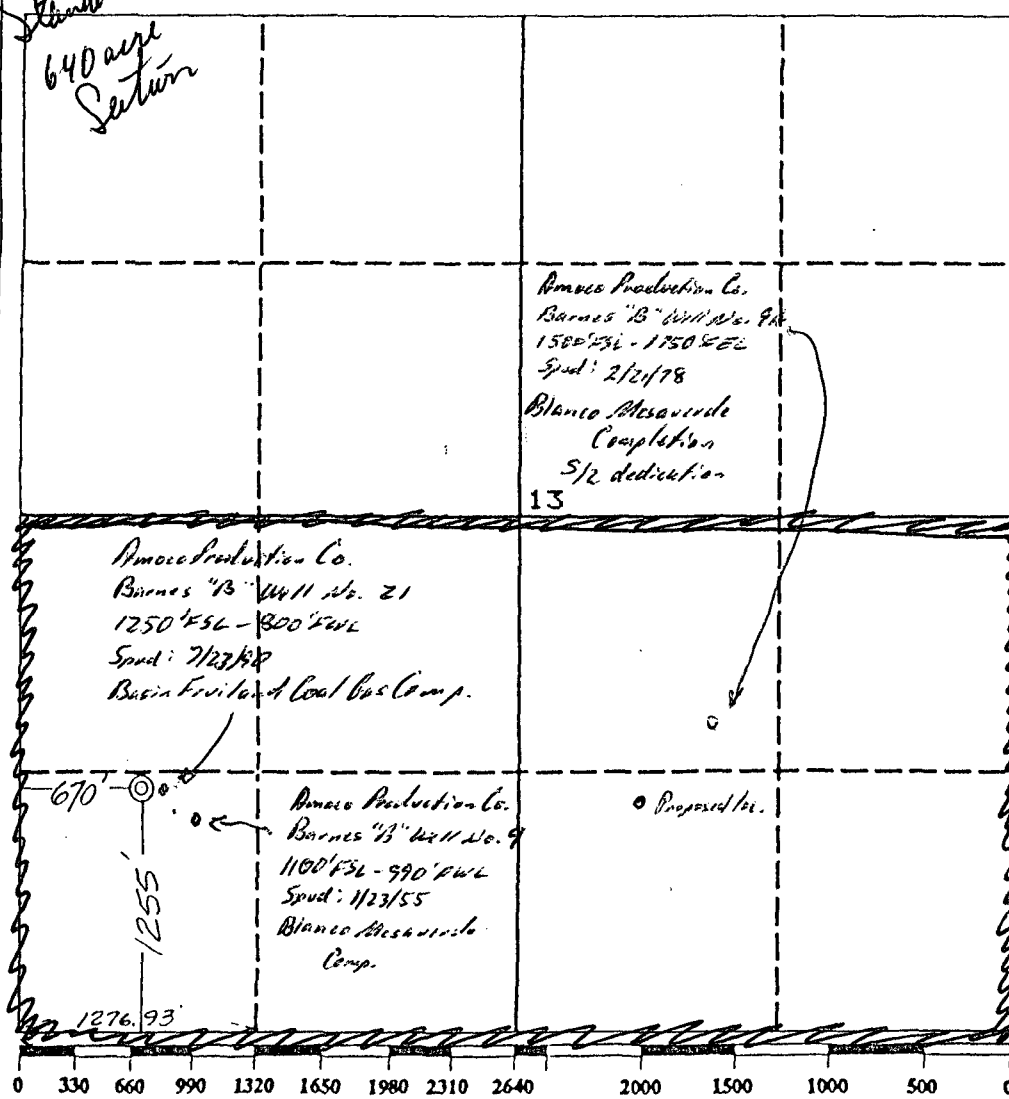 640 acre
Section
Amoco Production Co.
Barnes "B" Well No. 9A
1580' FSL - 1750' FEL
Spud: 2/21/78
Blanco Mesaverde
Completion
S/2 dedication
13
Amoco Production Co.
Barnes "B" Well No. 21
1250' FSL - 800' FWL
Spud:
Basin Fruitland Coal Gas Comp.
670'
Amoco Production Co.
Barnes "B" Well No. 9
1100' FSL - 990' FWL
Spud: 1/23/55
Blanco Mesaverde
Comp.
Proposed loc.
1255'
1276.93'
0 330 660 990 1320 1650 1980 2310 2640 2000 1500 1000 500